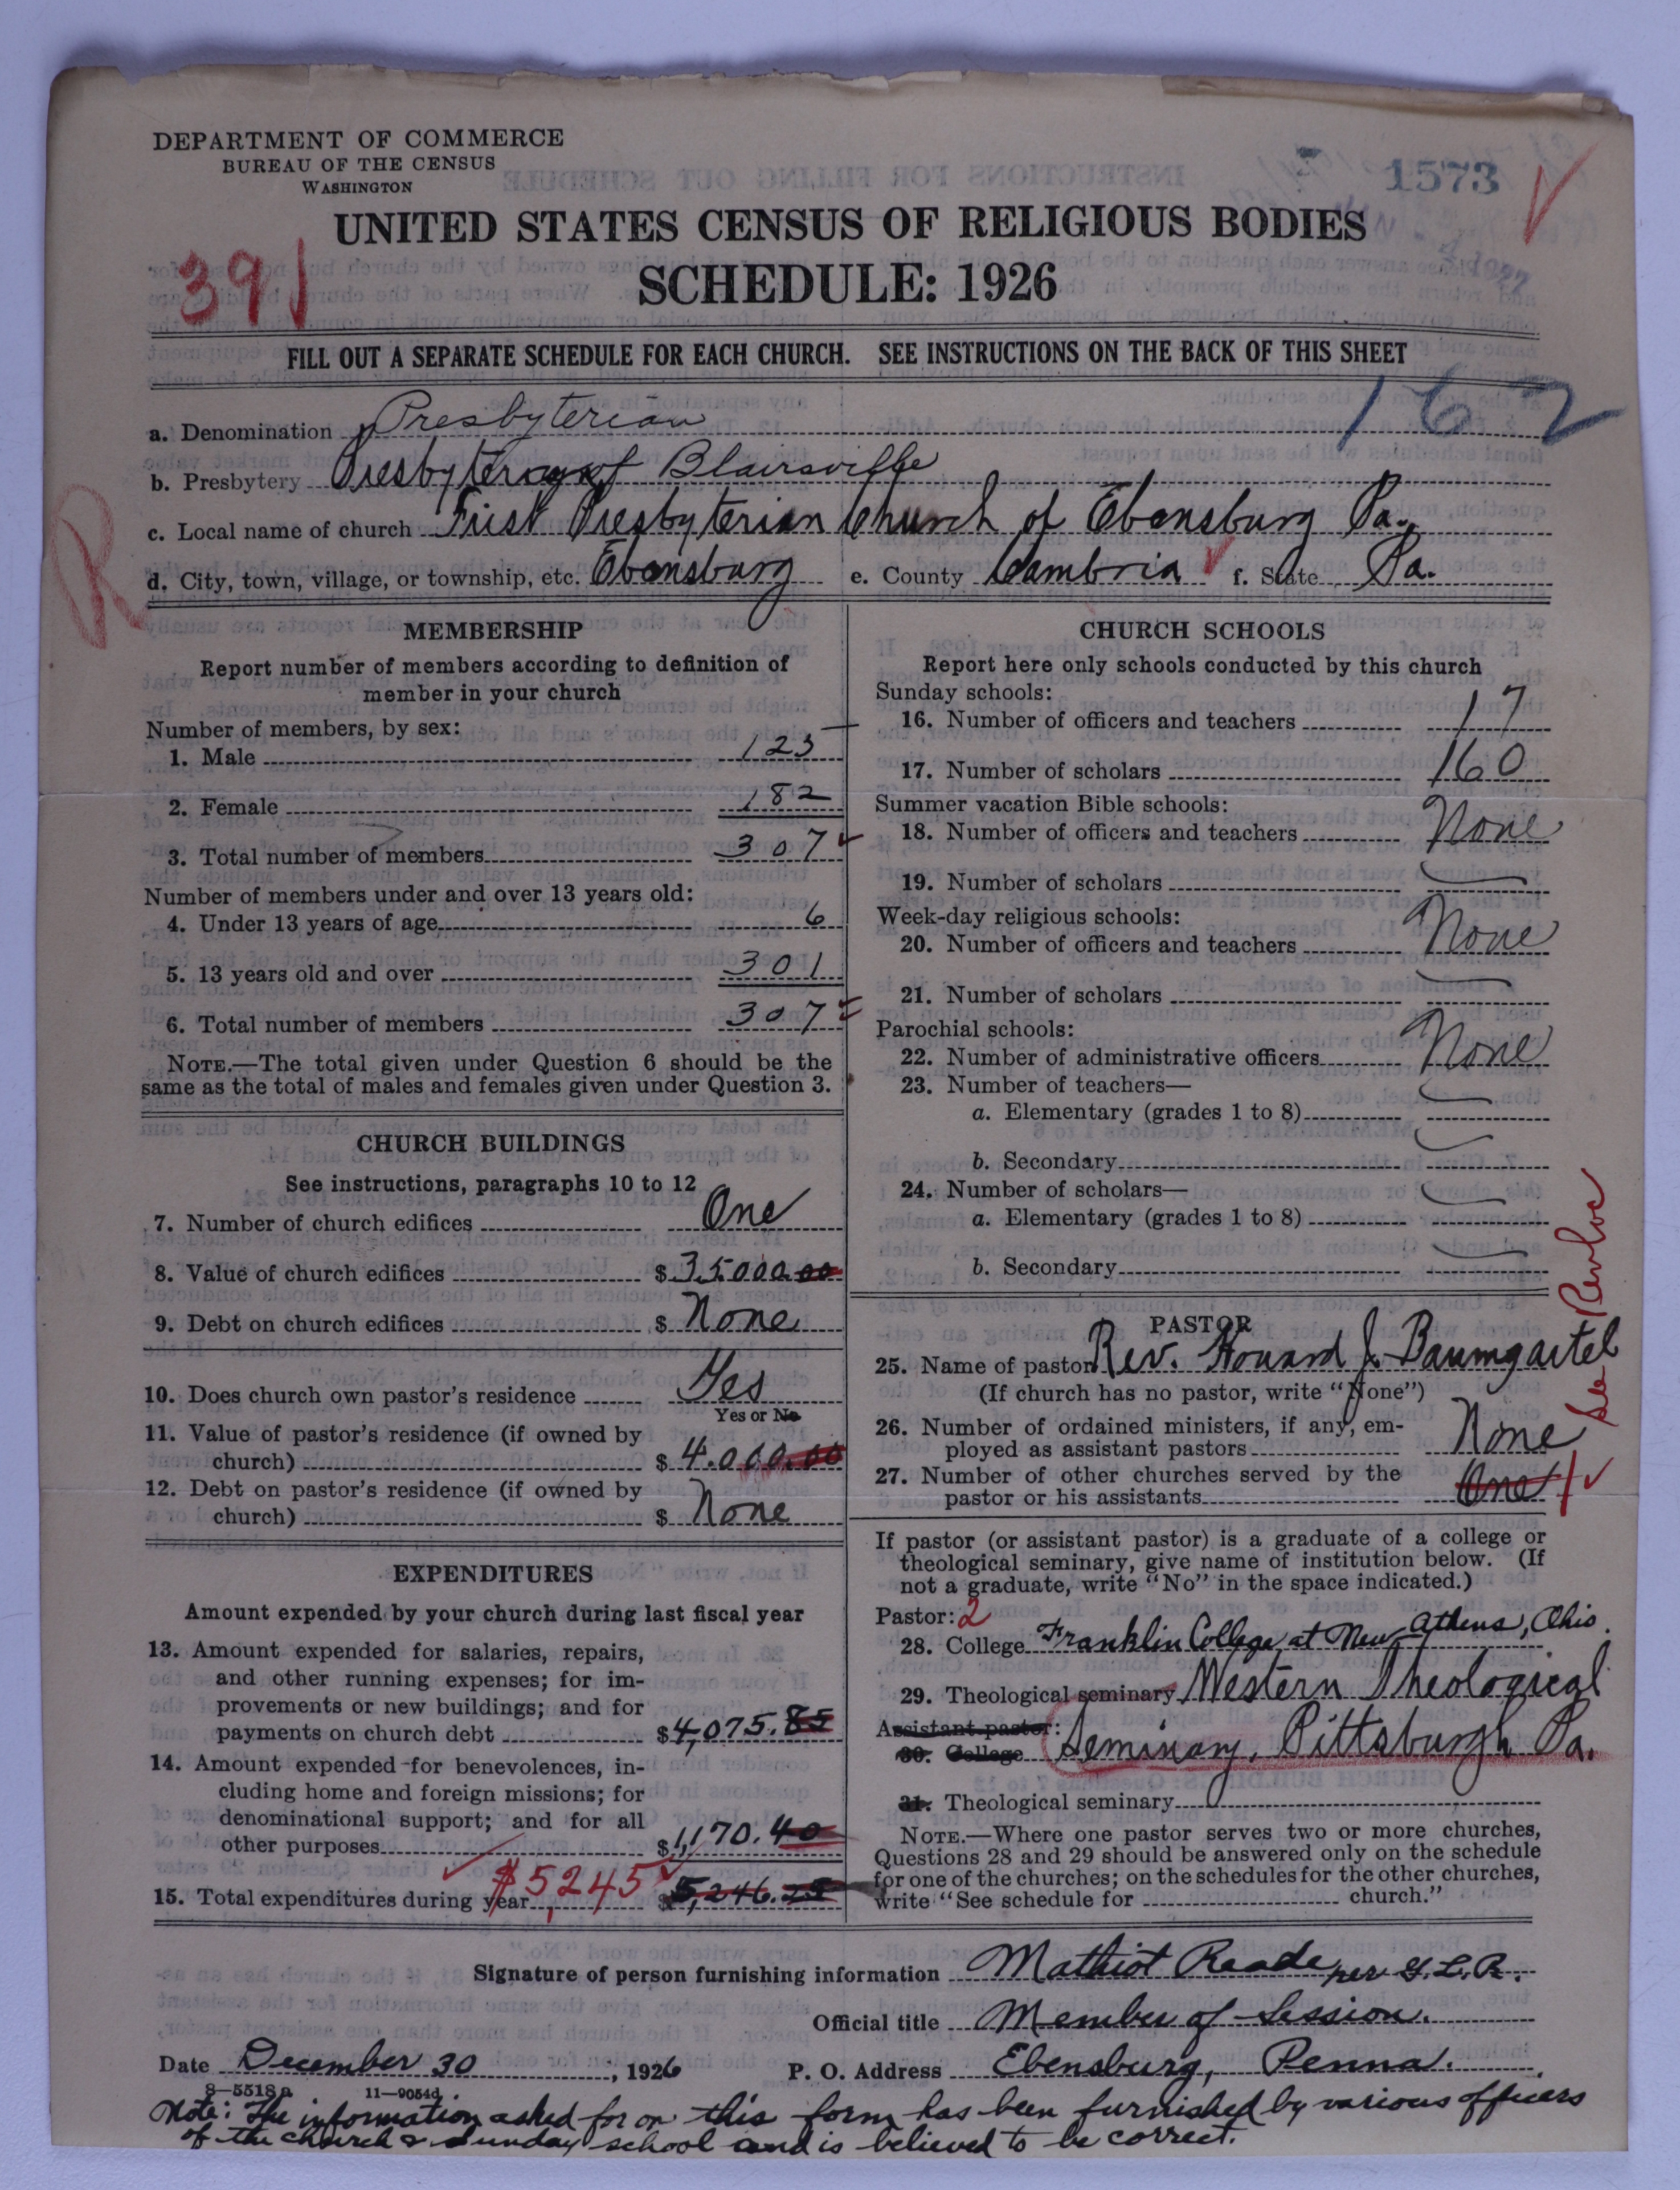 DEPARTMENT OF COMMERCE
BUREAU OF THE CENSUS
WASHINGTON
1573
UNITED STATES CENSUS OF RELIGIOUS BODIES
391
SCHEDULE: 1926
FILL OUT A SEPARATE SCHEDULE FOR EACH CHURCH. SEE INSTRUCTIONS ON THE BACK OF THIS SHEET
162
a. Denomination Presbyterian
b. Presbytery Presbytery of Blairsville
c. Local name of church First Presbyterian Church of Ebensburg Pa.
d. City, town, village, or township, etc. Ebensburg e. County Cambria f. State Pa.
R
MEMBERSHIP
Report number of members according to definition of
member in your church
Number of members, by sex:
1. Male 125
2. Female 182
3. Total number of members 307
Number of members under and over 13 years old:
4. Under 13 years of age 6
5. 13 years old and over 301
6. Total number of members 307
NOTE.—The total given under Question 6 should be the
same as the total of males and females given under Question 3.
CHURCH BUILDINGS
See instructions, paragraphs 10 to 12
7. Number of church edifices One
8. Value of church edifices $35000.00
9. Debt on church edifices $ None
10. Does church own pastor's residence Yes
Yes or No
11. Value of pastor's residence (if owned by
church) $ 4.000.00
12. Debt on pastor's residence (if owned by
church) $ None
EXPENDITURES
Amount expended by your church during last fiscal year
13. Amount expended for salaries, repairs,
and other running expenses; for im-
provements or new buildings; and for
payments on church debt $4,075.85
14. Amount expended for benevolences, in-
cluding home and foreign missions; for
denominational support; and for all
other purposes $1,170.40
15. Total expenditures during year $5,245 $5,246.25
CHURCH SCHOOLS
Report here only schools conducted by this church
Sunday schools:
16. Number of officers and teachers 17
17. Number of scholars 160
Summer vacation Bible schools:
18. Number of officers and teachers None
19. Number of scholars
Week-day religious schools:
20. Number of officers and teachers None
21. Number of scholars
Parochial schools:
22. Number of administrative officers None
23. Number of teachers—
a. Elementary (grades 1 to 8)
b. Secondary
24. Number of scholars—
a. Elementary (grades 1 to 8)
b. Secondary
See Revloc
PASTOR
25. Name of pastor Rev. Howard J. Baumgartel
(If church has no pastor, write "None")
26. Number of ordained ministers, if any, em-
ployed as assistant pastors None
27. Number of other churches served by the
pastor or his assistants One 1
If pastor (or assistant pastor) is a graduate of a college or
theological seminary, give name of institution below. (If
not a graduate, write "No" in the space indicated.)
Pastor: 2
28. College Franklin College at New Athens, Ohio.
29. Theological seminary Western Theological
Assistant pastor:
30. College Seminary, Pittsburgh Pa.
31. Theological seminary
NOTE.—Where one pastor serves two or more churches,
Questions 28 and 29 should be answered only on the schedule
for one of the churches; on the schedules for the other churches,
write "See schedule for church."
Signature of person furnishing information Mathiot Reade per G.L.R.
Official title Member of Session.
Date December 30, 1926 P. O. Address Ebensburg, Penna.
8—5518a 11—9054d
Note: The information asked for on this form has been furnished by various officers
of the church & Sunday school and is believed to be correct.